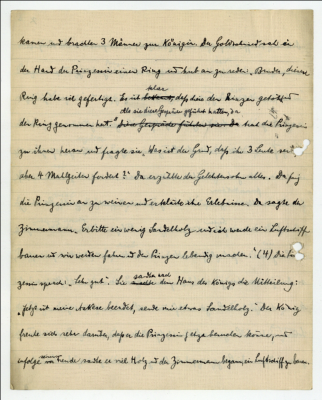 kamen und brachten 3 Männer zur Königin. Der Goldschmied sah an
der Hand der Prinzessin einen Ring und hub an zu reden. Bruder, diesen
klar
Ring habe ich gefertigt. Es ist bekannt, dass sie den Prinzen getötet und
Als sie diese Gespräche geführt hatten, da
den Ring genommen hat." trat die Prinzessin
zu ihnen heran und fragte sie. Was ist der Grund, dass ihr 3 Leute seid
aber 4 Mahlzeiten fordert?" Da erzählte der Goldschmied alles. Da fing
die Prinzessin an zu weinen und erklärte ihre Erlebnisse. Da sagte der
Zimmermann. Erbitte ein wenig Sandelholz und ich werde ein Luftschiff
bauen und wir werden fahren und den Prinzen lebendig machen." (4) Die Prin-
zessin sprach: "Sehr gut". Sie sandte dem Haus des Königs die Mitteilung:
"Jetzt ist meine Askese beendet, sende mir etwas Sandelholz." Der König
freute sich sehr darüber, dass er die Prinzessin jetzt bekommen könne, und
infolge seiner Freude sandte er viel Holz und der Zimmermann begann, ein Luftschiff zu bauen.